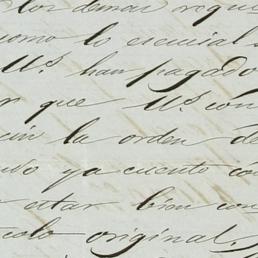 los demas requi
como lo esencial
Us. han pagado
r que Us. con
cin la orden de
ya cuento con
estar bien con
colo original.